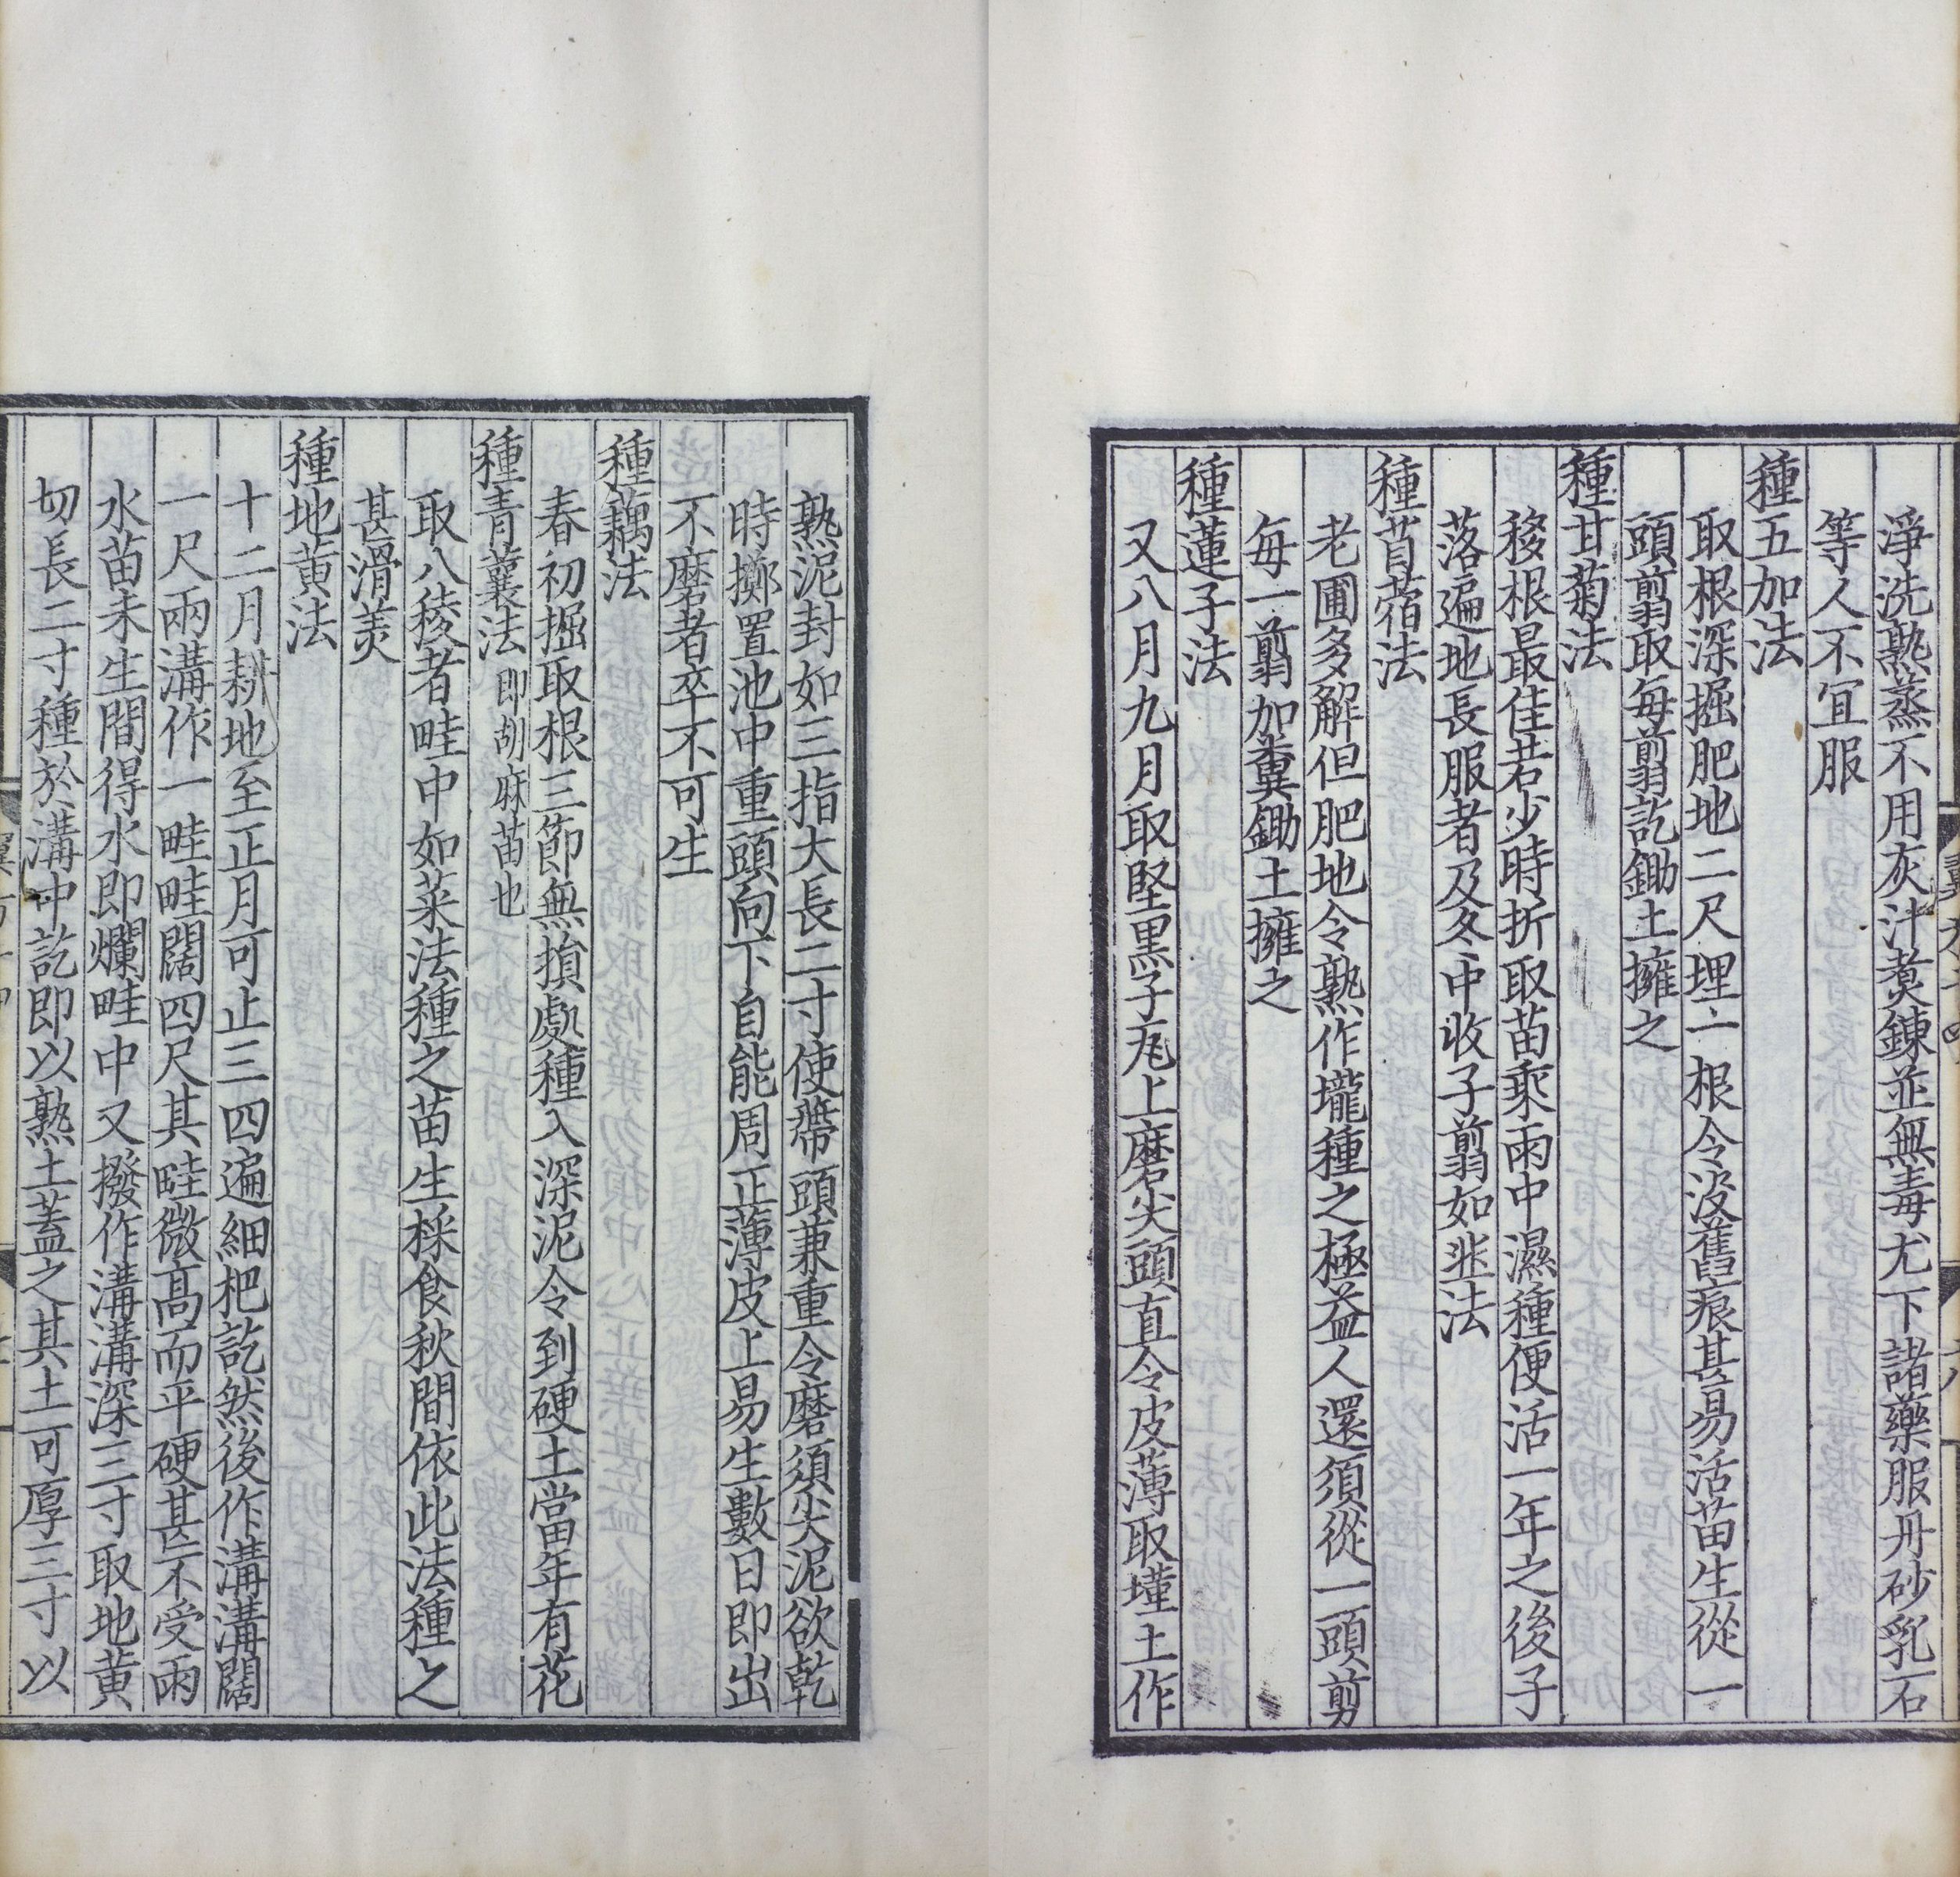 淨洗熟蒸不用灰汁煑鍊並無毒尤下諸藥服丹砂乳石
等人不宜服
種五加法
取根深掘肥地二尺埋一根令沒舊痕甚易活苗生從一
頭翦取每翦訖鋤土擁之
種甘菊法
移根最佳若少時折取苗乘雨中濕種便活一年之後子
落遍地長服者及冬中收子翦如韭法
種苜蓿法
老圃多解但肥地令熟作壠種之極益人還須從一頭剪
每一翦加糞鋤土擁之
種蓮子法
又八月九月取堅黑子瓦上磨尖頭直令皮薄取墐土作
熟泥封如三指大長二寸使蔕頭兼重令磨須尖泥欲乾
時擲置池中重頭向下自能周正薄皮上易生數日即出
不磨者卒不可生
種藕法
春初掘取根三節無損處種入深泥令到硬土當年有花
種青蘘法即胡麻苗也
取八稜者畦中如菜法種之苗生採食秋間依此法種之
甚滑美
種地黃法
十二月耕地至正月可止三四遍細杷訖然後作溝溝闊
一尺兩溝作一畦畦闊四尺其畦微高而平硬甚不受雨
水苗未生間得水即爛畦中又撥作溝溝深三寸取地黃
切長二寸種於溝中訖即以熟土蓋之其土可厚三寸以